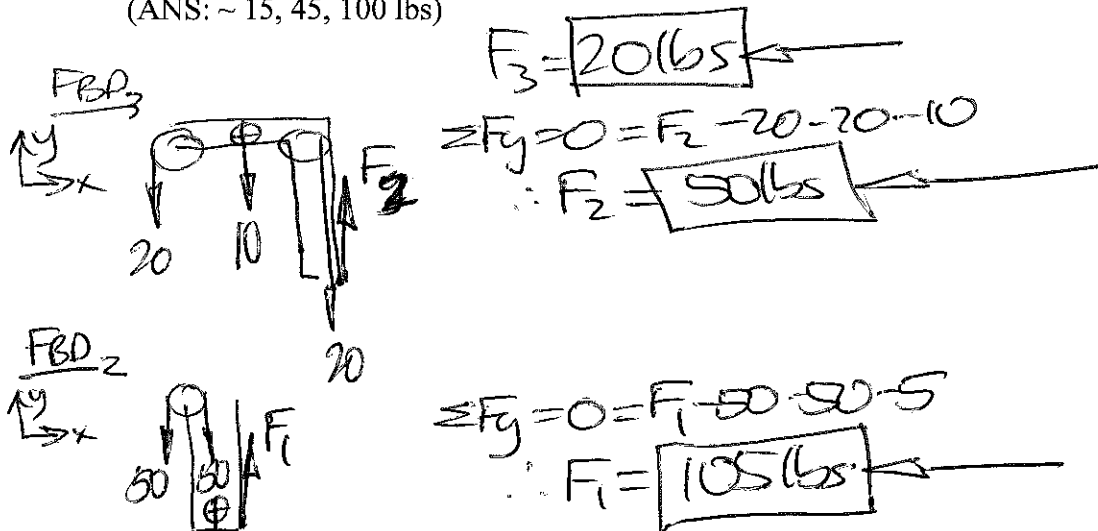 (ANS: ~ 15, 45, 100 lbs)
F3 = 20 lbs
FBD3
y
x
20
10
F2
20
ΣFy = 0 = F2 - 20 - 20 - 10
∴ F2 = 50 lbs
FBD2
y
x
50
50
F1
ΣFy = 0 = F1 - 50 - 50 - 5
∴ F1 = 105 lbs